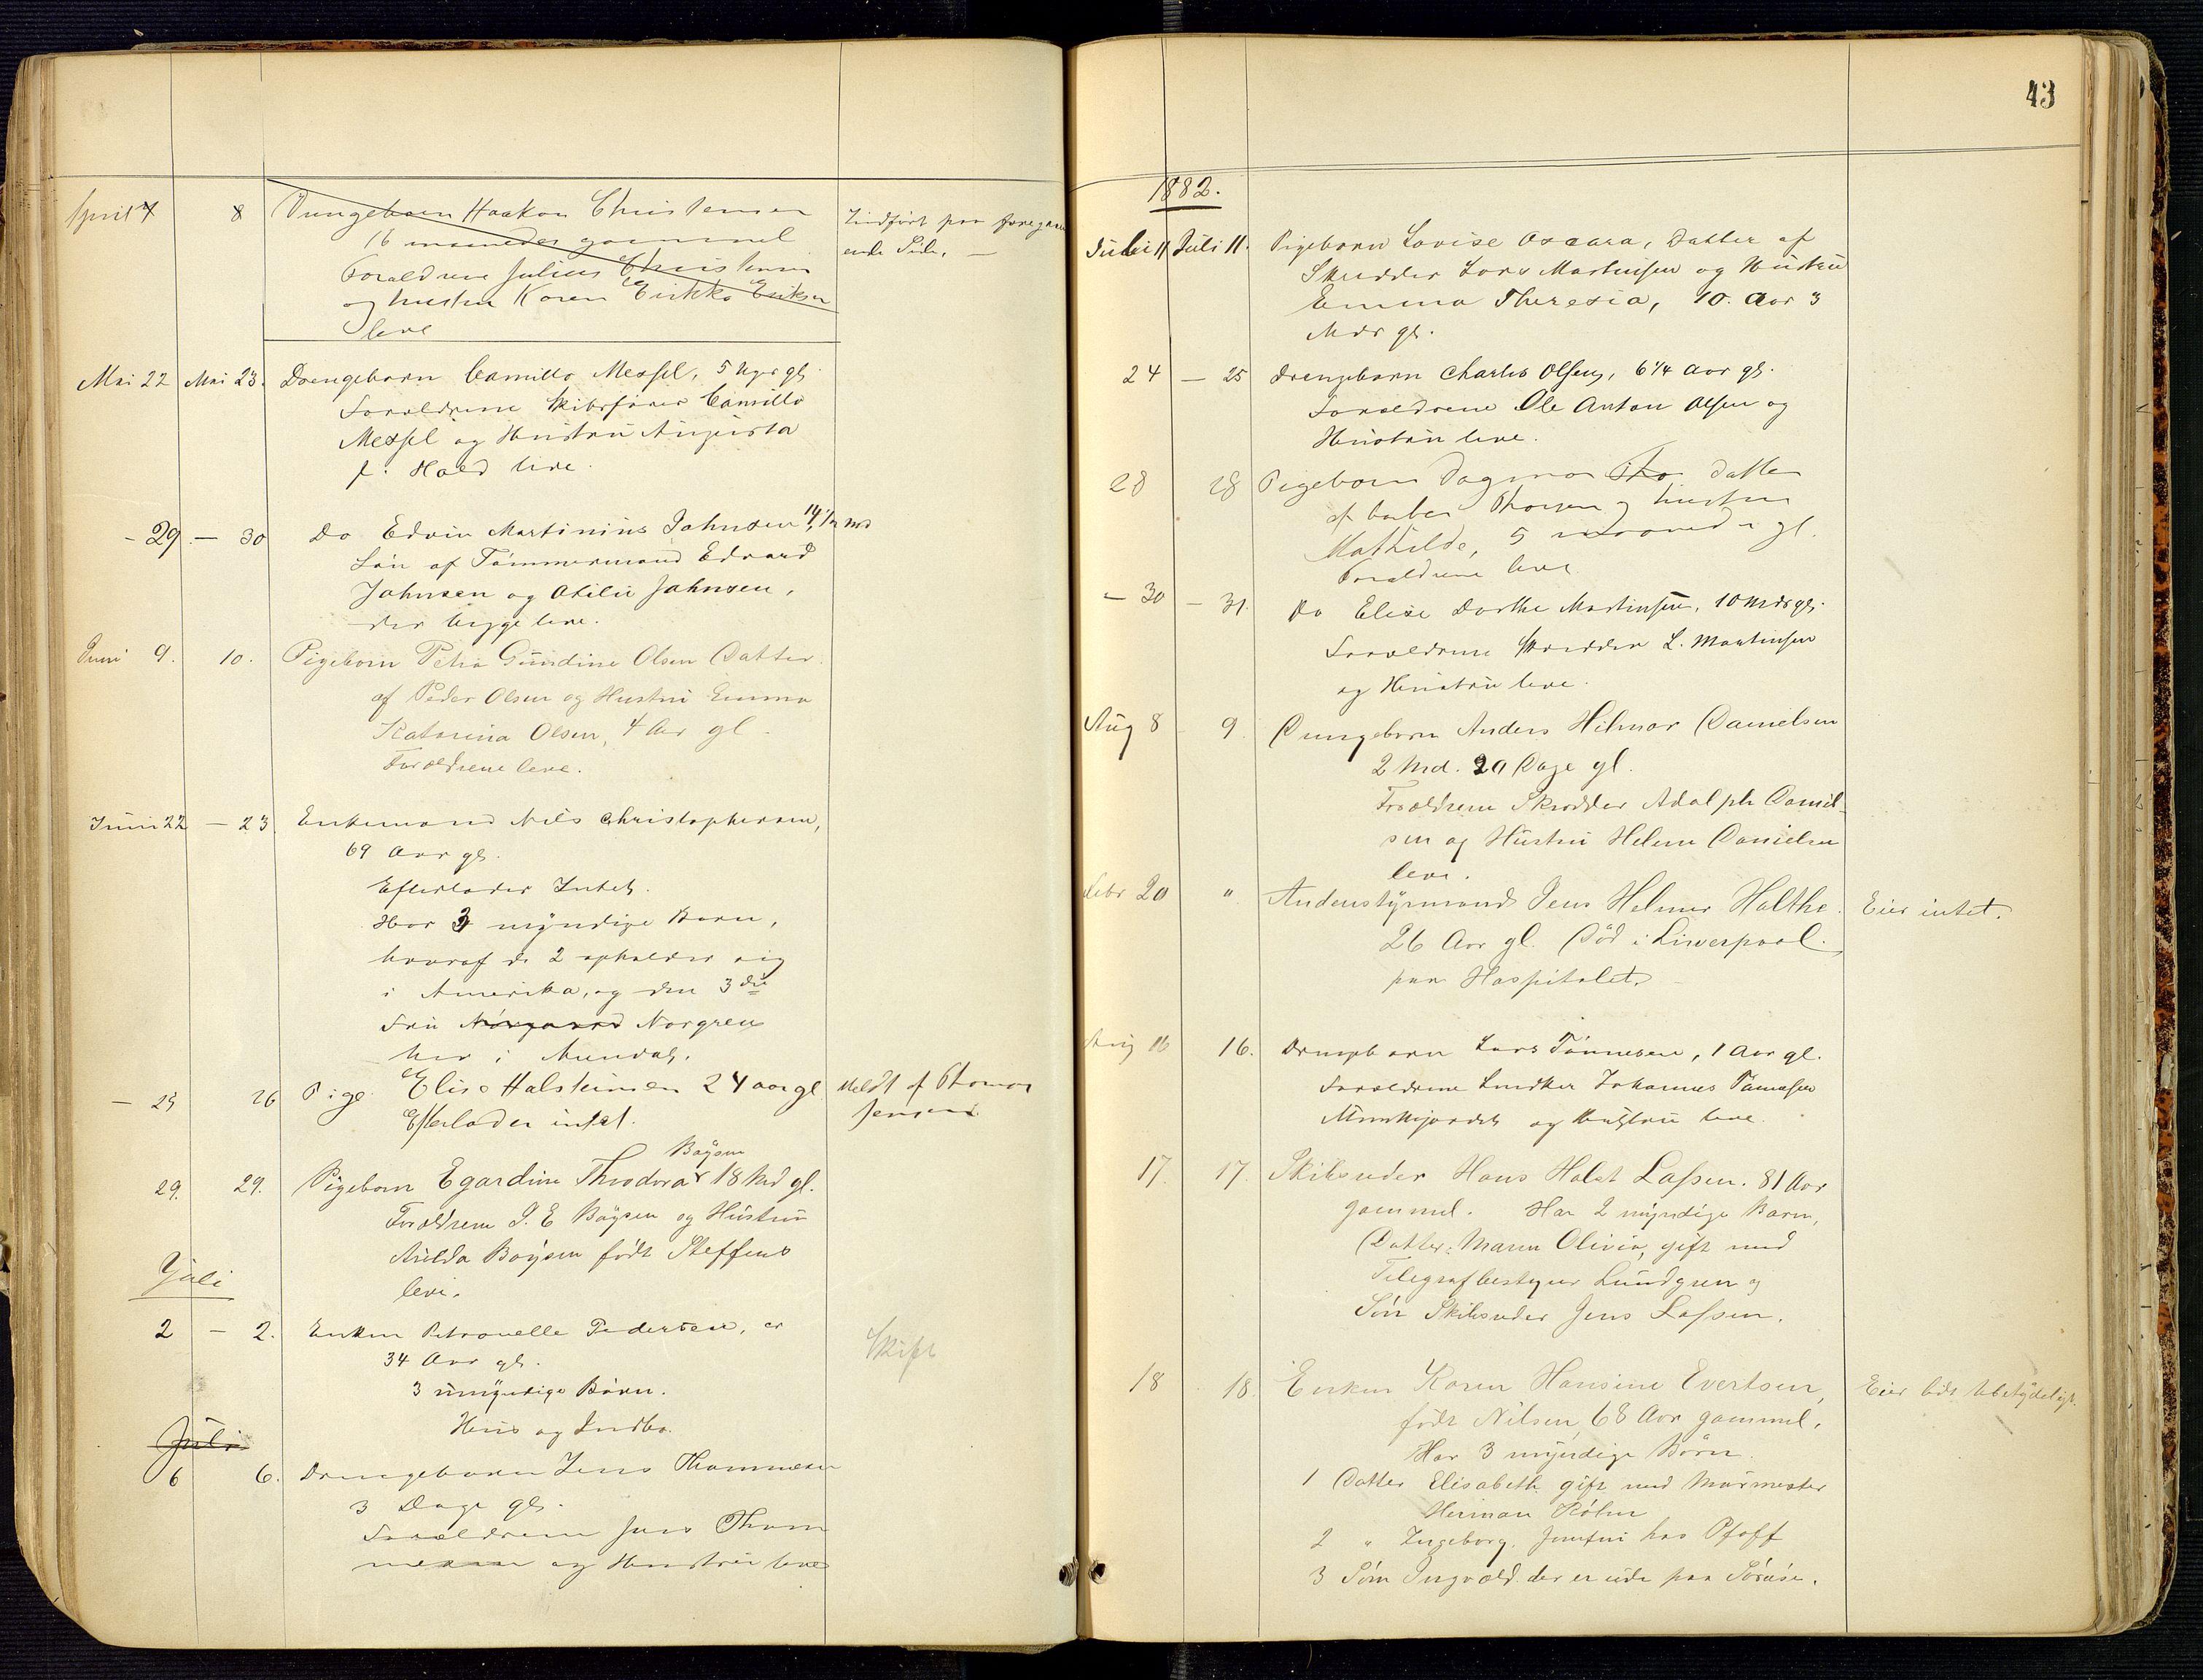 April 7 8 Drengebarn Haakon Christensen
16 maaneder gammel
Forældrene Julius Christensen
og hustru Karen Erikka Eriksen
leve
Indført paa foregaa
ende Side. —
Mai 22 Mai 23. Drengebarn Camillo Messel, 5 Uger gl.
Forældrene Skibsfører Camillo
Messel og Hustru Augusta
f. Hald leve.
- 29 — 30 Do Edvin Martinius Johnsen 14
Søn af Tømmermand Edvard
Johnsen og Otilie Johnsen,
der begge leve.
Juni 9. 10. Pigebarn Petra Gundine Olsen Datter
af Peder Olsen og Hustru Emma
Katarina Olsen, 4 Aar gl.
Forældrene leve.
Juni 22 — 23 Enkemand Nils Christophersen,
69 Aar gl.
Efterlader Intet.
Har 3 myndige Barn,
hvoraf de 2 opholder sig
i Amerika, og den 3die
Fru Nørgaard Norgren
her i Arendal.
— 25 26 Pige Elise Halsteinsen 24 aar gl
Efterlader intet.
Meldt af Thomas
Jensen
Bøysen
29. 29. Pigebarn Egardine Theodora 18 Md gl.
Forældrene J. E Bøysen og Hustru
Bøysen født Steffens
leve.
Juli
2 — 2. Enken Petronelle Pedersen, er
34 Aar gl.
3 umyndige Børn.
Hus og Indbo.
Skifte
Juli
6 6. Drengebarn Jens Thommesen
3 Dage gl.
Forældrene Jens Thom
mesen og Hustru leve
43
1882.
Juli 11 Juli 11. Pigebarn Lovise Oscara, Datter af
Skredder Lars Martinsen og Hustru
Emma Theresia, 10 Aar 3
Mdr gl.
24 — 25 Drengebarn Charles Olsen, 6 1/4 Aar gl.
Forældrene Ole Anton Olsen og
Hustru leve.
28 28 Pigebarn Dagmar Tho datter
af barber Thorsen og hustru
Mathilde, 5 maaneder gl.
Forældrene leve
— 30 — 31. Do Elise Dorthe Martinsen, 10 Mdr gl.
Forældrene Skredder L. Martinsen
og Hustru leve.
Aug 8 9 Drengebarn Anders Hilmar Danielsen
2 Md. 20 Dage gl.
Forældrene Skrædder Adolph Daniel-
sen og Hustru Helene Danielsen
leve.
Febr 20 " Andenstyrmand Jens Helmer Holthe.
26 Aar gl. Død i Liwerpool.
paa Hospitalet.
Eier intet.
Aug 16 16. Drengebarn Lars Tønnesen, 1 Aar gl.
Forældrene Snedker Johannes Tønnesen
Munkejordet og Hustru leve.
17. 17. Skibsreder Hans Holst Lassen. 81 Aar
gammel. Har 2 myndige Barn,
Datter: Maren Olivia, gift med
Telegrafbestyrer Lundgren og
Søn Skibsreder Jens Lassen.
18 18. Enken Karen Hansine Evertsen,
født Nilsen, 68 Aar gammel.
Har 3 myndige Børn.
1 Datter Elisabeth gift med Murmester
Herman Röhm
2 " Ingeborg. Jomfru hos Pfaff
3 Søn Ingvald der er ude paa Søreise.
Eier lidt Ubetydeligt.